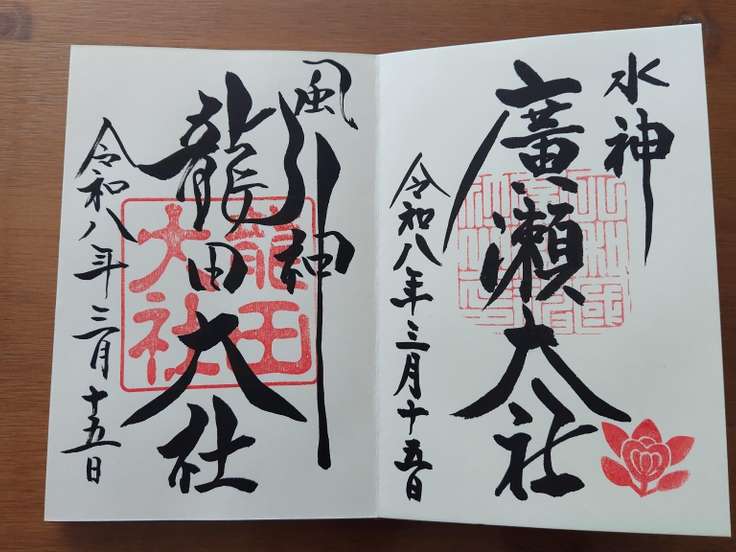 水神
廣瀬大社
令和八年三月十五日
風神
龍田大社
龍田大社
令和八年三月十五日